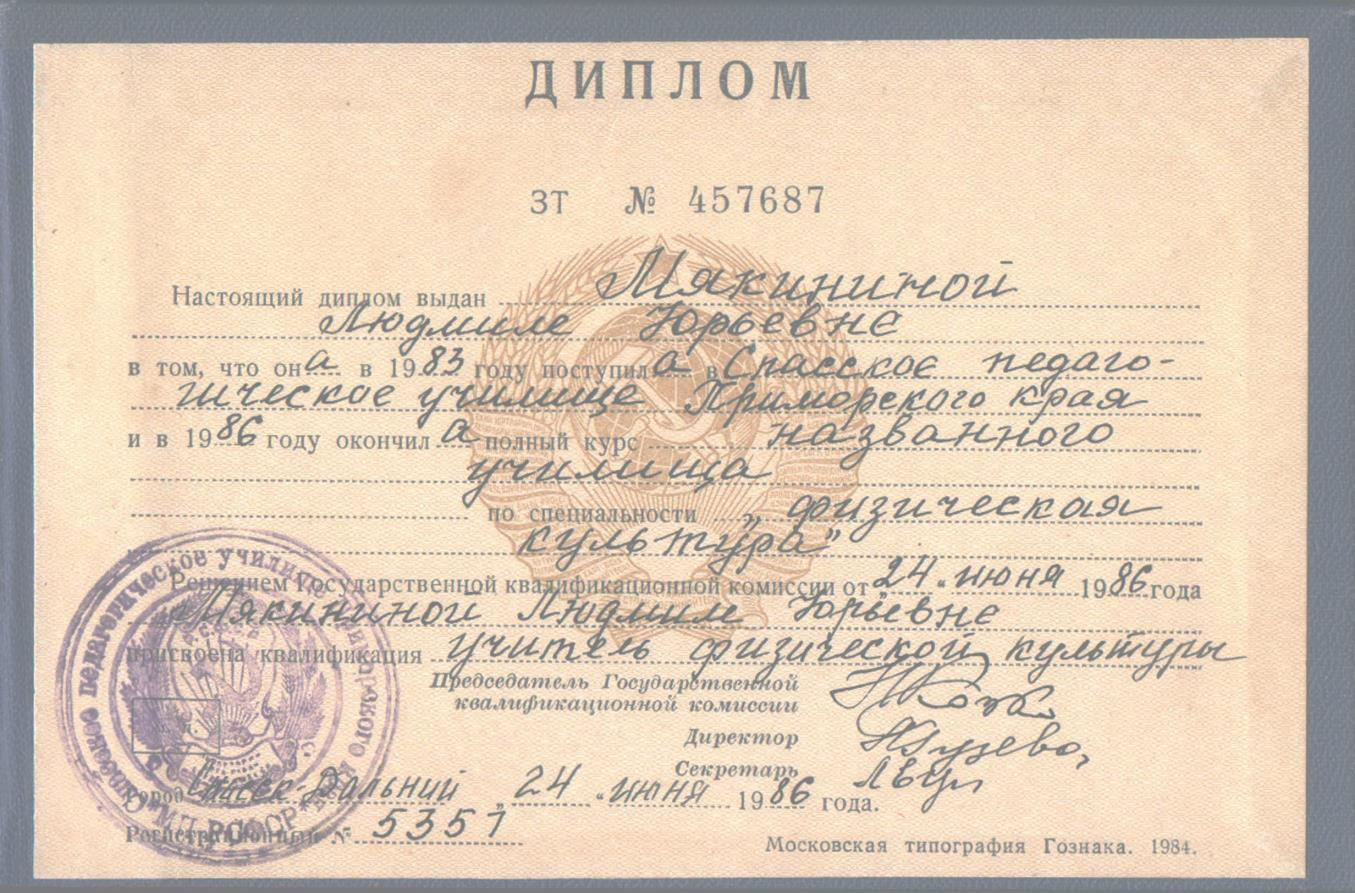 ДИПЛОМ
ЗТ № 457687
Настоящий диплом выдан Мякининой
Людмиле Юрьевне
в том, что она в 1983 году поступила в Спасское педаго-
гическое училище Приморского края
и в 1986 году окончила полный курс названного
училища
по специальности „физическая
культура"
Решением Государственной квалификационной комиссии от „24" июня 1986 года
Мякининой Людмиле Юрьевне
присвоена квалификация учитель физической культуры
Председатель Государственной
квалификационной комиссии
Директор
Секретарь
Город Спасск-Дальний „24" июня 1986 года.
Регистрационный № 5351
Московская типография Гознака. 1984.
педагогическое училище Приморского края
МП РСФСР